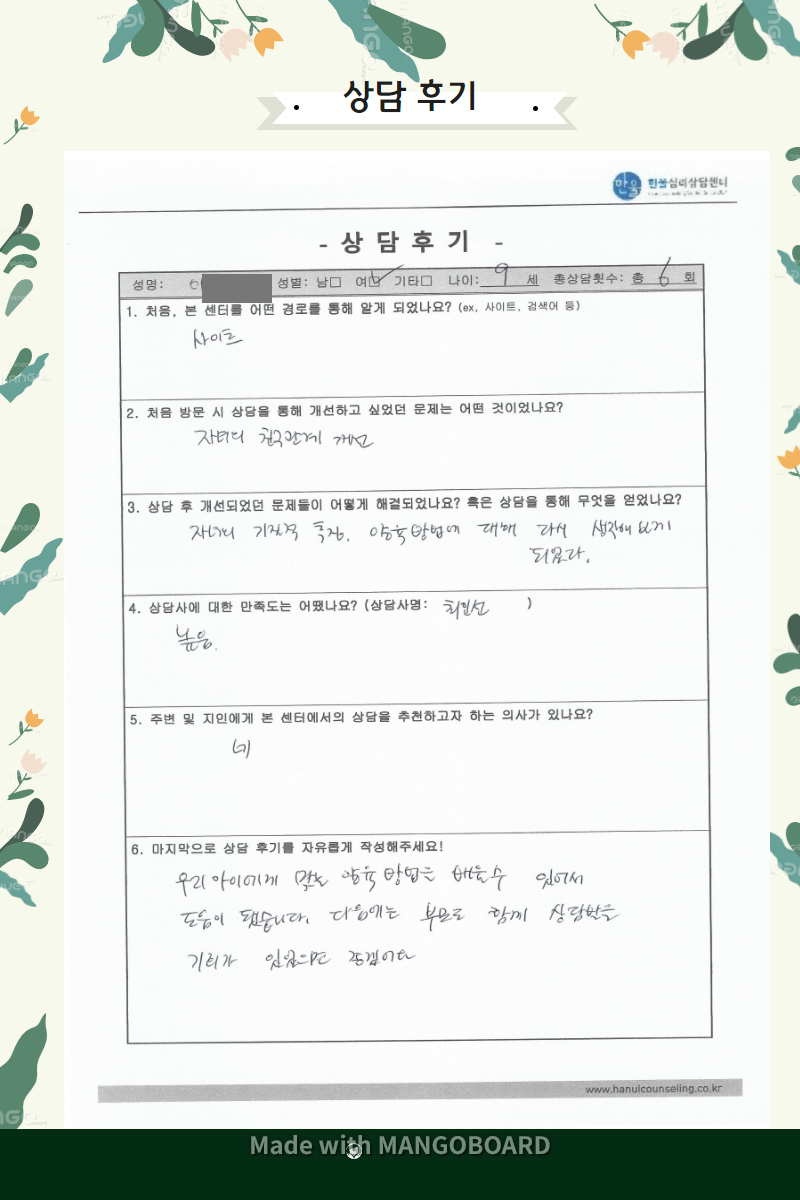 상담 후기
한울심리상담센터
- 상 담 후 기 -
성명: 성별: 남□ 여☑ 기타□ 나이: 9 세 총상담횟수: 총 6 회
1. 처음, 본 센터를 어떤 경로를 통해 알게 되었나요? (ex, 사이트, 검색어 등)
사이트
2. 처음 방문 시 상담을 통해 개선하고 싶었던 문제는 어떤 것이었나요?
자녀의 친구관계 개선
3. 상담 후 개선되었던 문제들이 어떻게 해결되었나요? 혹은 상담을 통해 무엇을 얻었나요?
자녀의 기질적 특징, 양육방법에 대해 다시 생각해 보게
되었다.
4. 상담사에 대한 만족도는 어땠나요? (상담사명: 최인선 )
높음.
5. 주변 및 지인에게 본 센터에서의 상담을 추천하고자 하는 의사가 있나요?
네
6. 마지막으로 상담 후기를 자유롭게 작성해주세요!
우리 아이에게 맞는 양육 방법을 배울수 있어서
도움이 됐습니다. 다음에는 부모로 함께 상담받을
기회가 있었으면 좋겠어요
www.hanulcounseling.co.kr
Made with MANGOBOARD